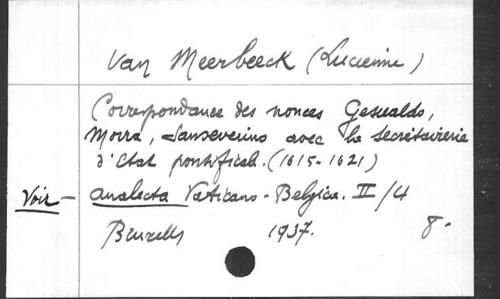 Van Meerbeeck (Lucienne)
Correspondance des nonces Gesualdo,
Morra, Sanseverino avec la Secrétairerie
d'Etat pontificale. (1615-1621)
Voir - Analecta Vaticano-Belgica. II/4
Bruxelles 1937. 8°